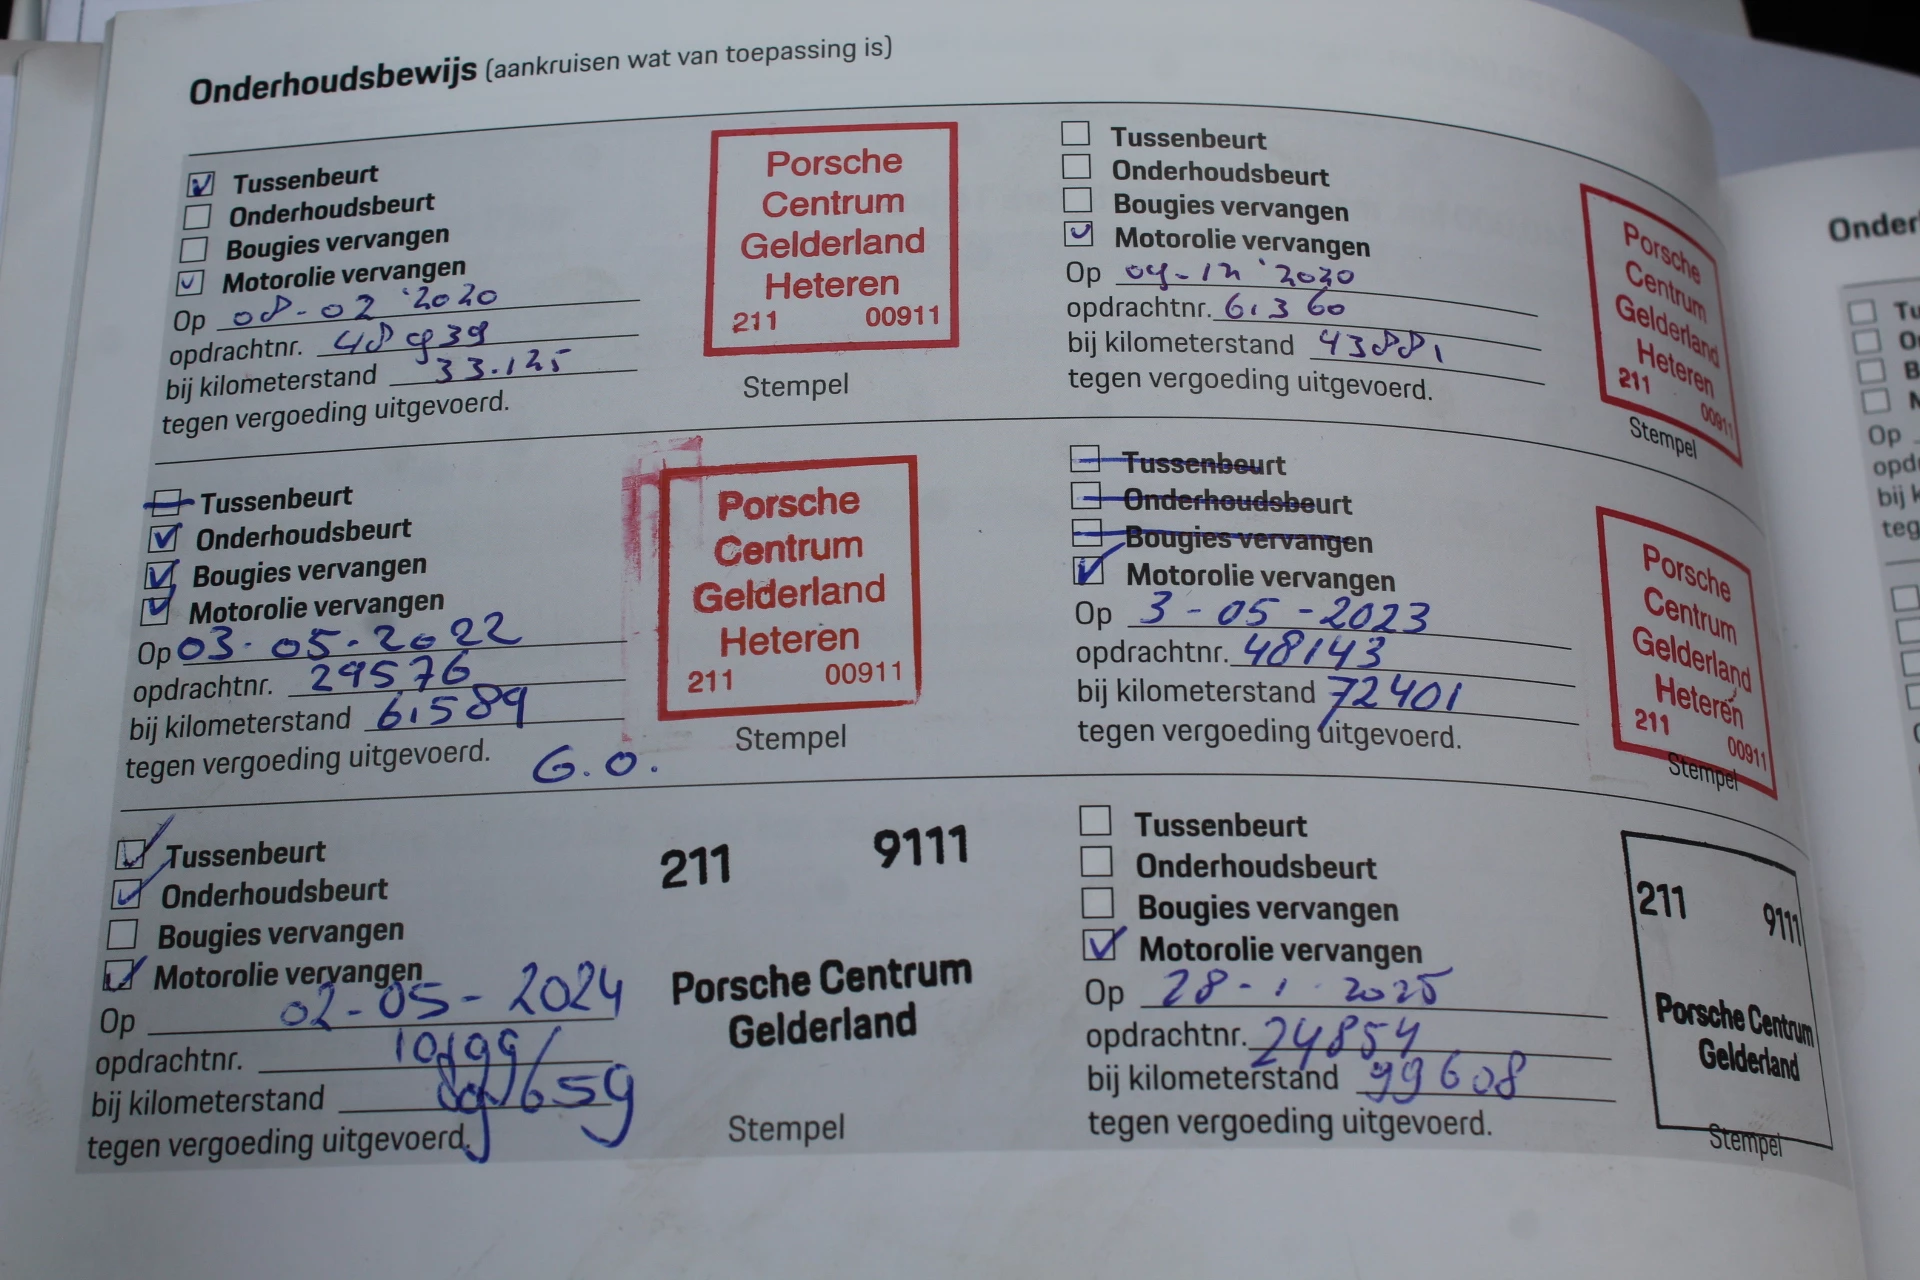 Onderhoudsbewijs (aankruisen wat van toepassing is)
Tussenbeurt
Onderhoudsbeurt
Bougies vervangen
Motorolie vervangen
Op 08-02 '2020
opdrachtnr. 48939
bij kilometerstand 33.125
tegen vergoeding uitgevoerd.
Porsche
Centrum
Gelderland
Heteren
211 00911
Stempel
Tussenbeurt
Onderhoudsbeurt
Bougies vervangen
Motorolie vervangen
Op 04-12 '2020
opdrachtnr. 61360
bij kilometerstand 43881
tegen vergoeding uitgevoerd.
Porsche
Centrum
Gelderland
Heteren
211 00911
Stempel
Tussenbeurt
Onderhoudsbeurt
Bougies vervangen
Motorolie vervangen
Op 03-05-2022
opdrachtnr. 29576
bij kilometerstand 61589
tegen vergoeding uitgevoerd. G.O.
Porsche
Centrum
Gelderland
Heteren
211 00911
Stempel
Tussenbeurt
Onderhoudsbeurt
Bougies vervangen
Motorolie vervangen
Op 3-05-2023
opdrachtnr. 48143
bij kilometerstand 72401
tegen vergoeding uitgevoerd.
Porsche
Centrum
Gelderland
Heteren
211 00911
Stempel
Tussenbeurt
Onderhoudsbeurt
Bougies vervangen
Motorolie vervangen
Op 02-05-2024
opdrachtnr.
bij kilometerstand
tegen vergoeding uitgevoerd.
211 9111
Porsche Centrum
Gelderland
Stempel
Tussenbeurt
Onderhoudsbeurt
Bougies vervangen
Motorolie vervangen
Op 28-1-2025
opdrachtnr. 24854
bij kilometerstand 99608
tegen vergoeding uitgevoerd.
211 9111
Porsche Centrum
Gelderland
Stempel
Onder
Tu
O
B
Op
opd
bij k
teg